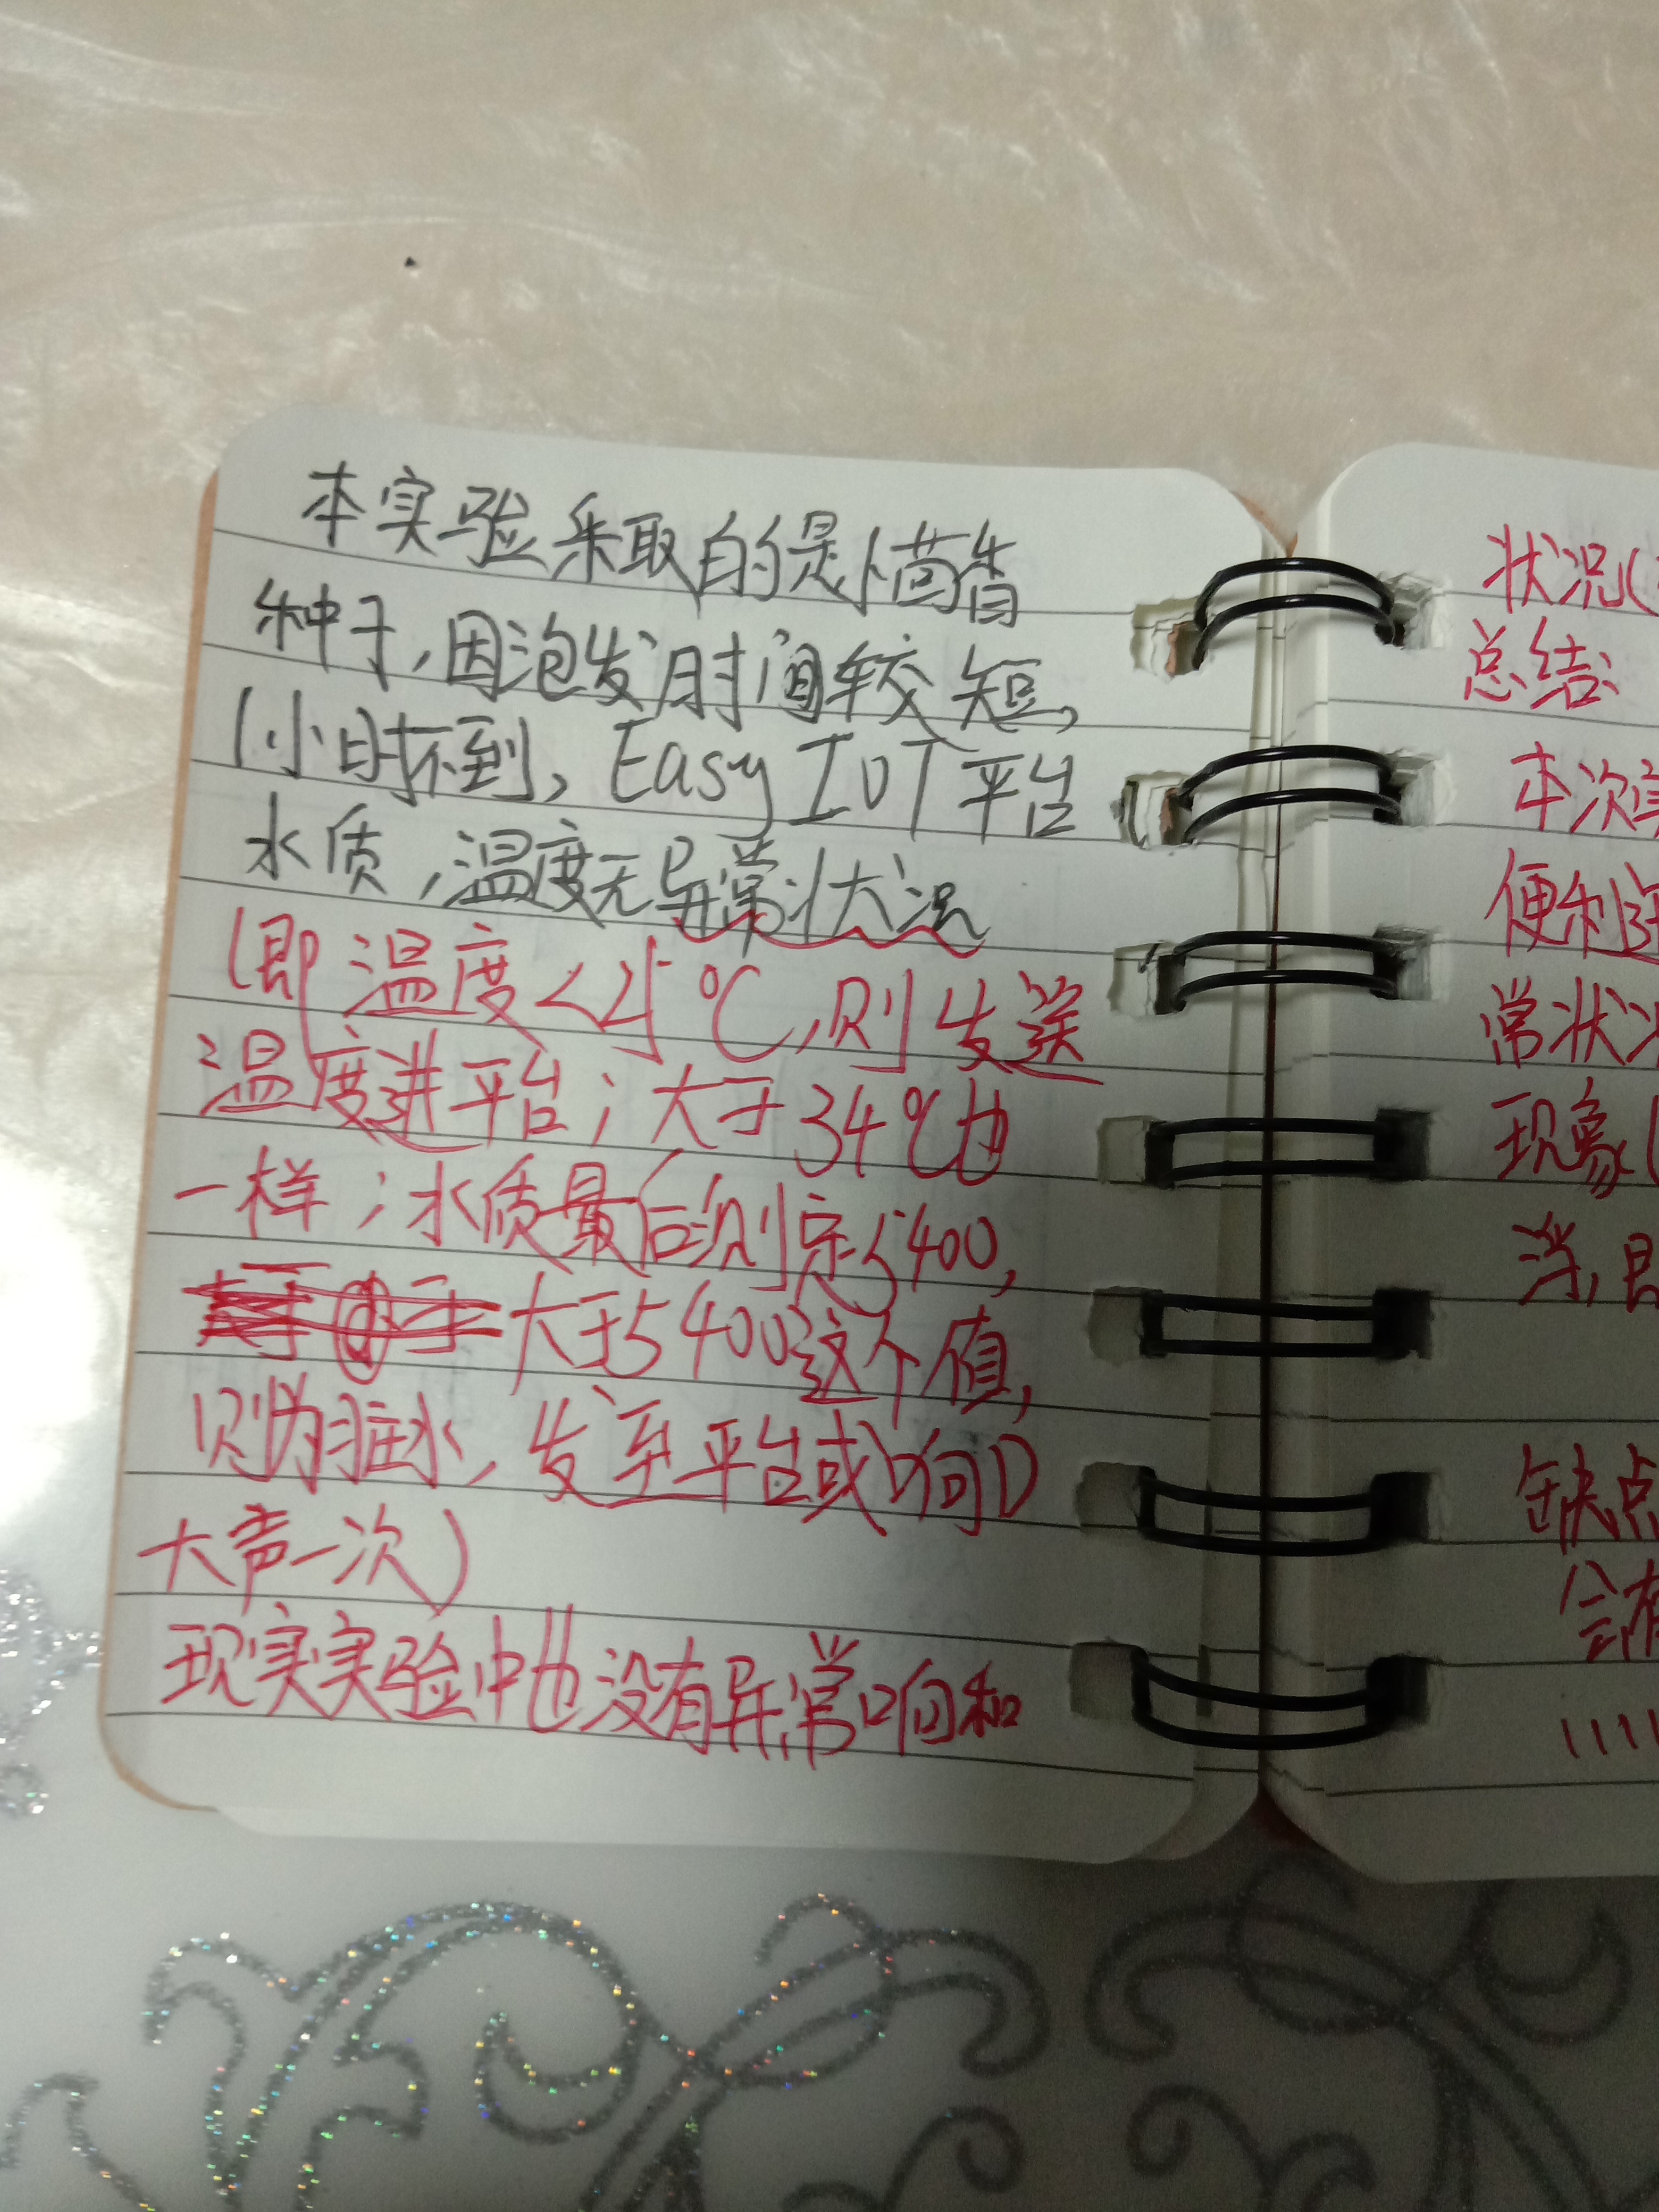 本实验采取的是小茴香
种子,因泡发时间较短,
1小时不到,Easy IOT平台
水质,温度无异常状况
(即温度<25℃,则发送
温度进平台;大于34℃也
一样;水质最后测定5400,
大于5400这个值,
则为脏水,发至平台或响
大声一次)
现实实验中也没有异常响和
状况(
总结:
本次实
便利
常状况
现象(
当,即
缺点
会有